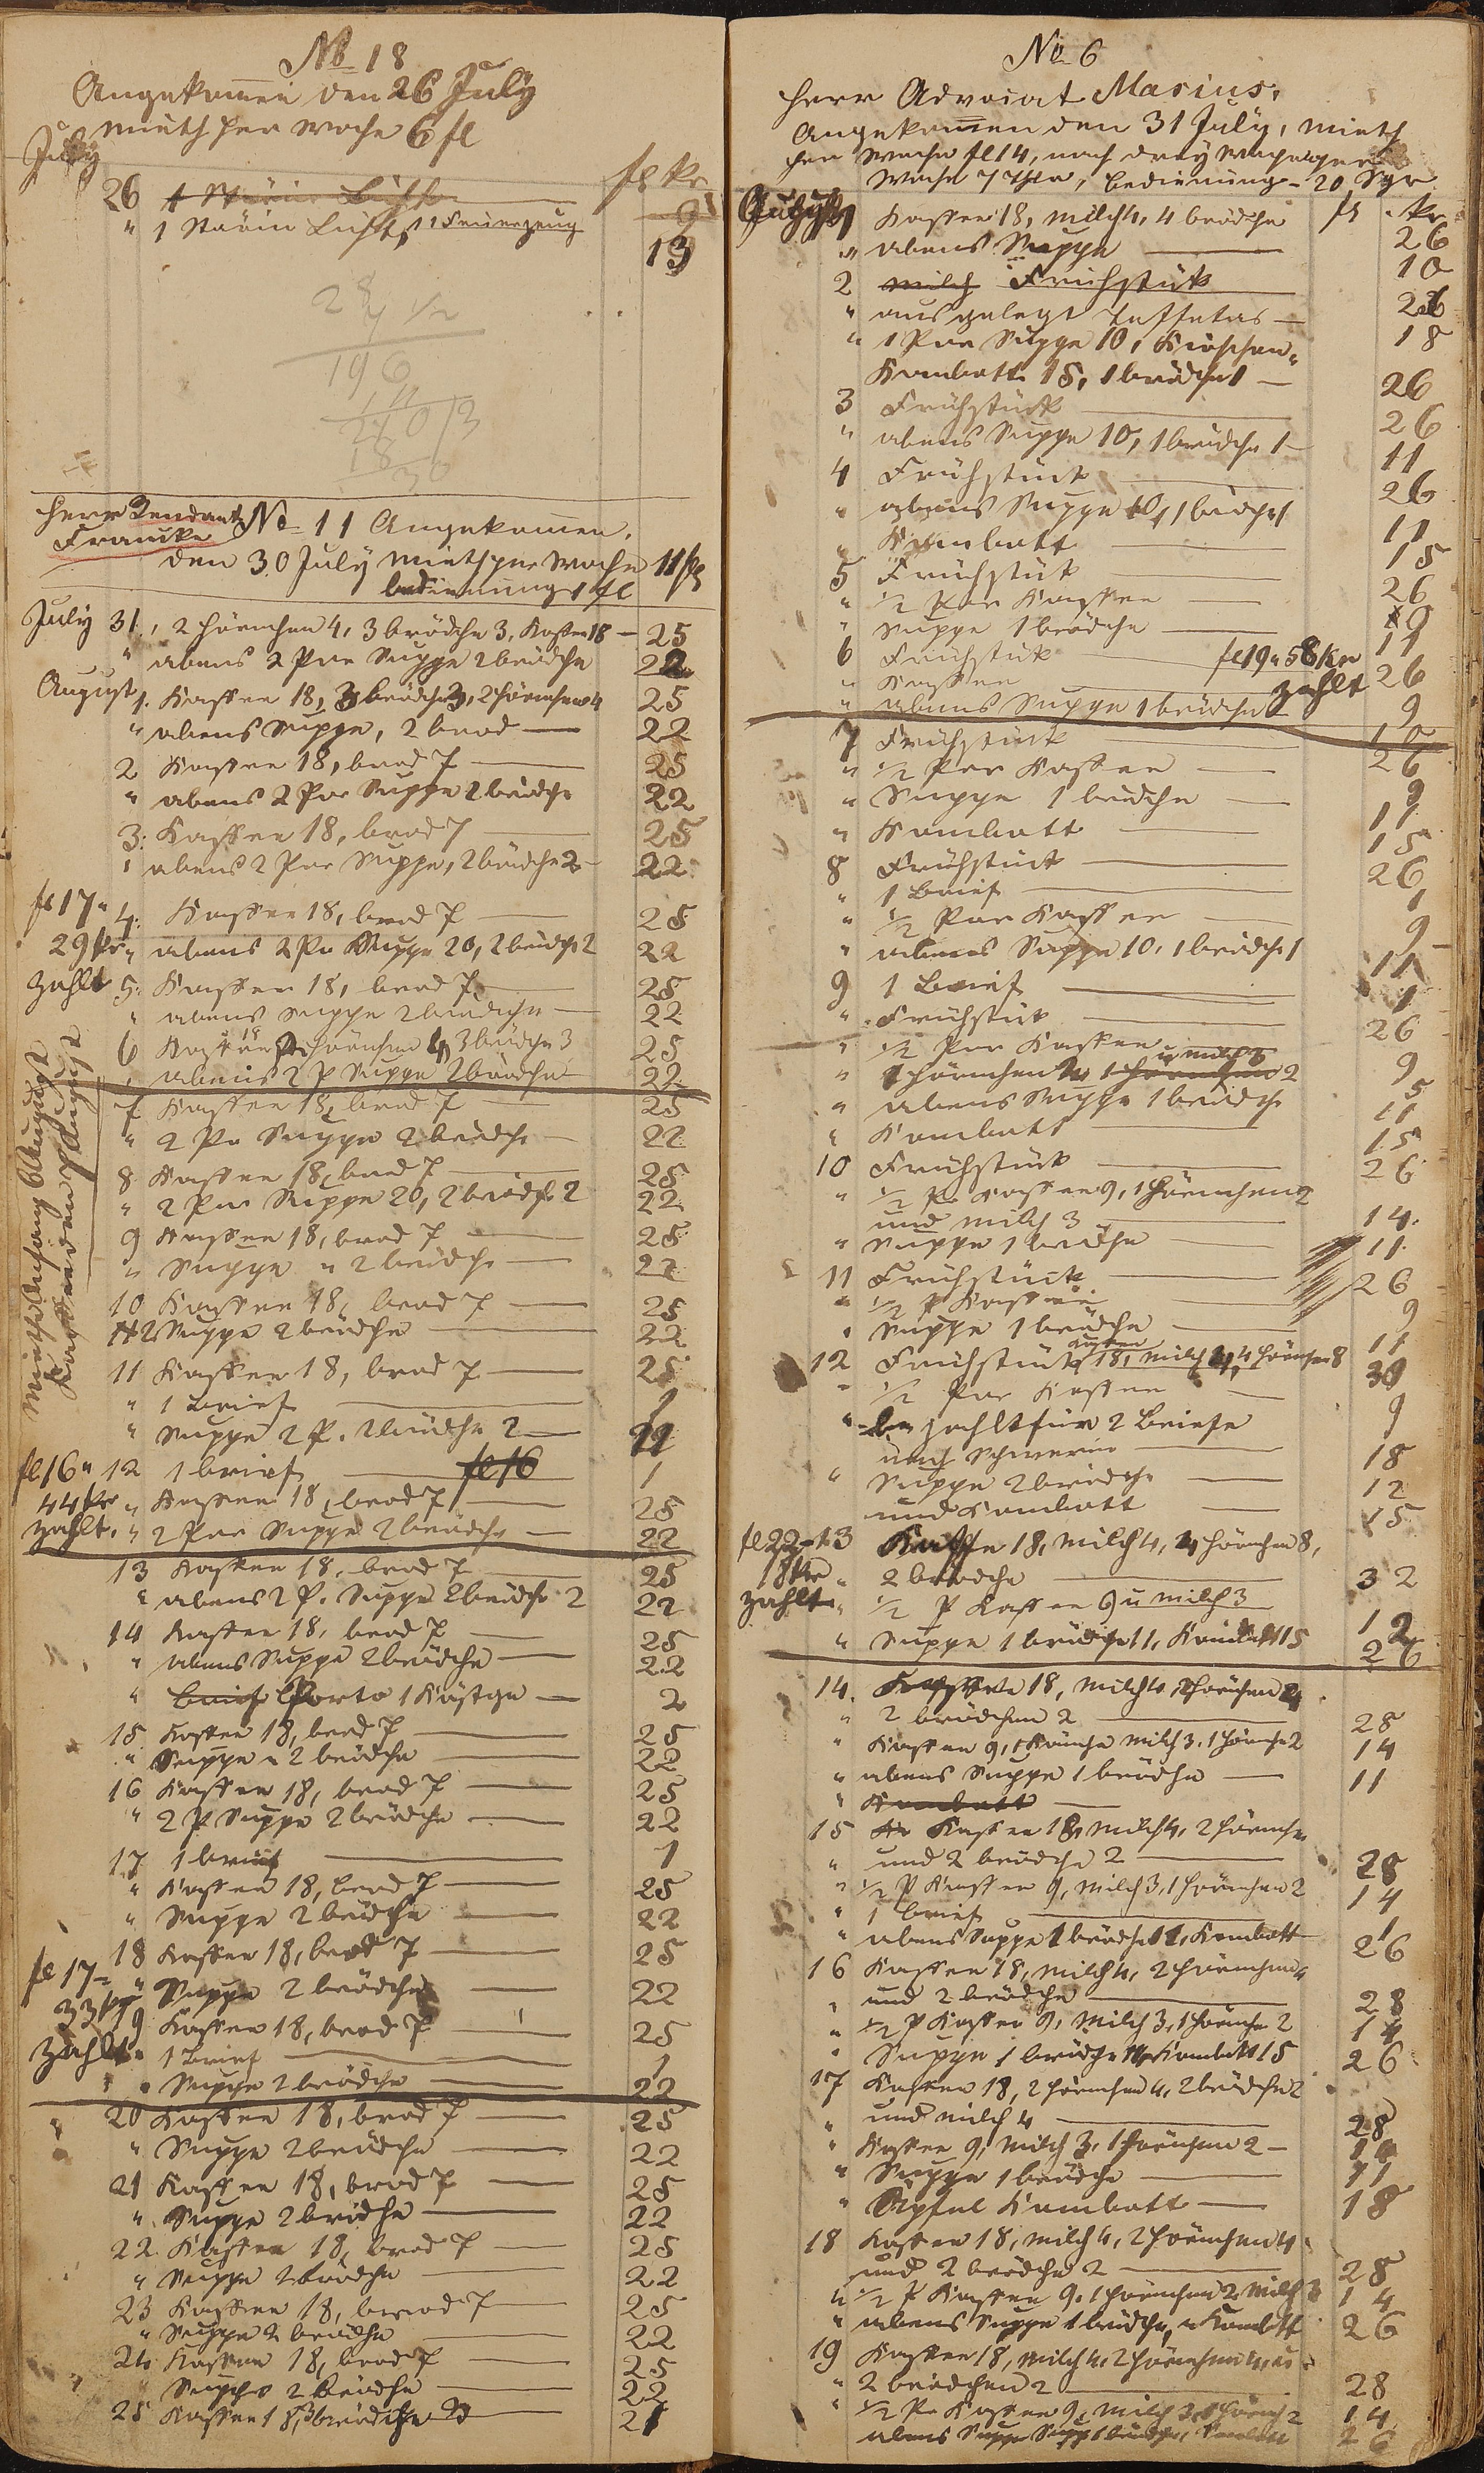 No 18
Angekomen den 26 July
mieth per Woche 6 fl
July
fl kr
26 1 Stärin Licht
" 1 Stärin Licht, 1 Feuerzeug
13
28 1/2
196
Herr Rendant
Francke
No 11 Angekomen
den 30 July mieth per Woche 11 fl
bedienung 1 fl
July 31. 2 hörnchen 4, 3 brödche 3, Kaffee 18 — 25
" abens 2 Por Suppe 2 brödche 22
August 1. Kaffee 18, 3 brödche 3, 2 hörnchen 4 25
" abens Suppe, 2 brod — 22
2 Kaffee 18, brod 7 — 25
" abens 2 Por Suppe 2 brödche 22
3. Kaffee 18, brod 7 — 25
" abens 2 Por Suppe, 2 brödche 2 — 22
fl 17 "
29 kr
zahlt
4. Kaffee 18, brod 7 — 25
" abens 2 Po Suppe 20, 2 brödche 2 22
5. Kaffee 18, brod 7 — 25
" abens Suppe 2 brödche — 22
6 Kaffee 18 hörnchen 4, 3 brödche 3 25
" abens 2 P Suppe 2 brödche 22
Miethe Anfang 6 August
Kaffee den 7 August
7 Kaffee 18, brod 7 — 25
" 2 Po Suppe 2 brödche — 22
8 Kaffee 18, brod 7 — 25
" 2 Por Suppe 20, 2 brödche 2 22
9 Kaffee 18, brod 7 — 25
" Suppe u 2 brödche — 22
10 Kaffee 18, brod 7 — 25
" 2 Suppe 2 brödche — 22
11 Kaffee 18, brod 7 — 25
" 1 brief — 1
" Suppe 2 P. 2 brödche 2 — 22
fl 16 "
44 kr
zahlt.
12 1 brief — fl 16 1
" Kaffee 18, brod 7 — 25
" 2 Por Suppe 2 brödche — 22
13 Kaffee 18, brod 7 — 25
" abens 2 P. Suppe 2 brödche 2 22
14 Kaffee 18, brod 7 — 25
" abens Suppe 2 brödche — 22
" brief Porto 1 Kästge — 2
15 Kaffee 18, brod 7 — 25
" Suppe u 2 brödche — 22
16 Kaffee 18, brod 7 — 25
" 2 P Suppe 2 brödche — 22
17 1 brief — 1
" Kaffee 18, brod 7 — 25
" Suppe 2 brödche — 22
fl 17 =
33 kr
zahlt
18 Kaffee 18, brod 7 — 25
" Suppe 2 brödche — 22
19 Kaffee 18, brod 7 — 25
" 1 brief — 1
" Suppe 2 brödche — 22
20 Kaffee 18, brod 7 — 25
" Suppe 2 brödche — 22
21 Kaffee 18, brod 7 — 25
" Suppe 2 brödche — 22
22 Kaffee 18, brod 7 — 25
" Suppe 2 brödche — 22
23 Kaffee 18, brod 7 — 25
" Suppe 2 brödche — 22
24 Kaffee 18, brod 7 — 25
" Suppe 2 brödche — 22
25 Kaffee 18, 3 brödche 3 — 21
No 6
Herr Advocat Marius,
Angekomen den 31 July, mieth
per Woche fl 14, nach drey Woche per
Woche 7 Thlr, bedienung - 20 Sgr
August 1 Kaffee 18, milch 4, 4 brödche fl kr 26
" abens Suppe — 10
2 milch Frühstük — 26
" ausgelegt — 18
" 1 Por Suppe 10, Kirschen
Kombott 15, 1 brödche 1 — 26
3 Frühstück — 26
" abens Suppe 10, 1 brödche 1 — 11
4 Frühstück — 26
" abens Suppe 10, 1 brödche 1 11
" Kombott — 15
5 Frühstük — 26
" 1/2 Por Kaffee — 9
" Suppe 1 brödche — 11
6 Frühstük — fl 19 " 58 kr 26
" Kaffee — zahlt 9
" abens Suppe 1 brödche
7 Frühstück — 26
" 1/2 Por Kaffee — 9
" Suppe 1 brödche — 11
" Kombott — 15
8 Frühstück — 26
" 1 Brief — 1
" 1/2 Por Kaffee — 9
" abens Suppe 10, 1 brödche 1 11
9 1 Brief — 1
" Frühstük — 26
" 1/2 Por Kaffee — 9
" 1 hörnchen 2, u milch 3 5
" abens Suppe 1 brödche 11
" Kombott — 15
10 Frühstück — 26
" 1/2 Po Kaffee 9, 1 hörnchen 2
und milch 3 — 14.
" Suppe 1 brödche — 11
11 Frühstück — 26
" 1/2 P Kaffee — 9
" Suppe 1 brödche — 11
12 Frühstück, Kaffee 18, milch 4, 4 hörnchen 8 30
" 1/2 Por Kaffee — 9
" bezahlt für 2 Briefe
nach Schwerin — 18
" Suppe 2 brödche — 12
und Kombott — 15
fl 22 -
18 kr
zahlt
13 Kaffe 18, milch 4, 4 hörnchen 8,
" 2 brödche — 32
" 1/2 P Kaffee 9 u milch 3 12
" Suppe 1 brödche 11, Kombott 15 26
14. Kaffee 18, milch 4, 2 hörnchen 4
" 2 brödchen 2 — 28
" Kaffee 9, milch 3, 1 hörnche 2 14
" abens Suppe 1 brödche — 11
" Kombott —
15 Kaffee 18, milch 4, 2 hörnche
" und 2 brödche 2 — 28
" 1/2 P Kaffee 9, milch 3, 1 hörnchen 2 14
" 1 brief — 1
" abens Suppe 1 brödche 11, Kombott 26
16 Kaffee 18, milch 4, 2 hörnchen
" und 2 brödche — 28
" 1/2 P Kaffee 9, milch 3, 1 hörnche 2 14
" Suppe 1 brödche 11, Kombott 15 26
17 Kaffee 18, 2 hörnchen 4, 2 brödche 2
" und milch 4 — 28
" Kaffee 9, milch 3, 1 hörnchen 2 — 14
" Suppe 1 brödche — 11
" Apfel Kombott — 18
18 Kaffee 18, milch 4, 2 hörnchen 4
und 2 brödche 2 — 28
" 1/2 P Kaffee 9, 1 hörnchen 2 milch 3 14
" abens Suppe 1 brödche, u Kombott 26
19 Kaffee 18, milch 4, 2 hörnchen 4, u
" 2 brödchen 2 — 28
" 1/2 Po Kaffee 9, milch 3, 1 hörnch 2 14
abens Suppe 1 brödche, Kombott 26